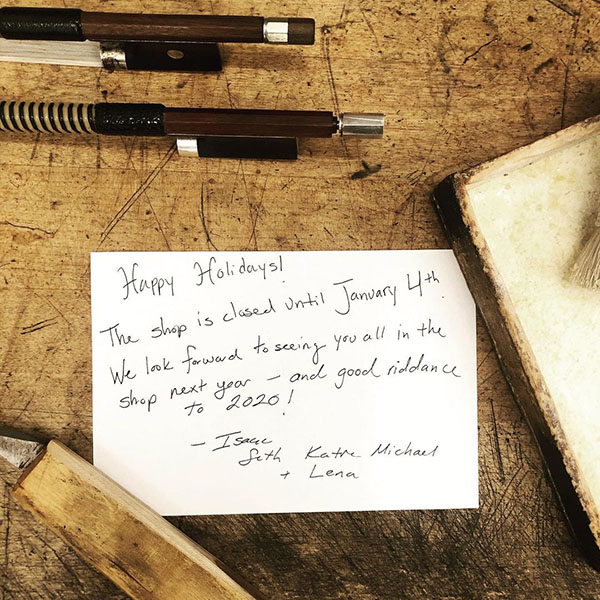 Happy Holidays!
The shop is closed until January 4th.
We look forward to seeing you all in the
shop next year – and good riddance
to 2020!
– Isaac
Seth Katre Michael
+ Lena